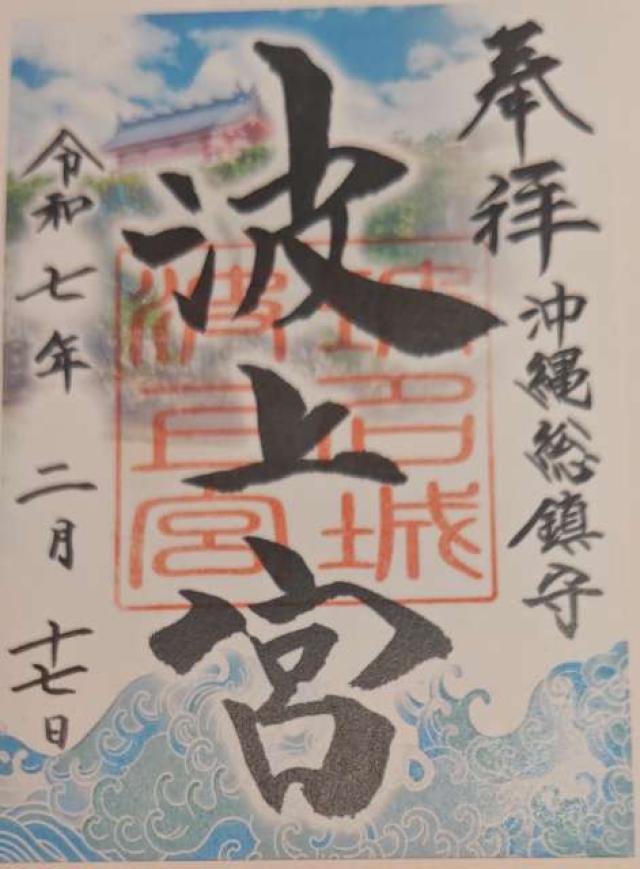 奉拝
沖縄総鎮守
波上宮
琉名城
波上宮
令和七年 二月 十七日